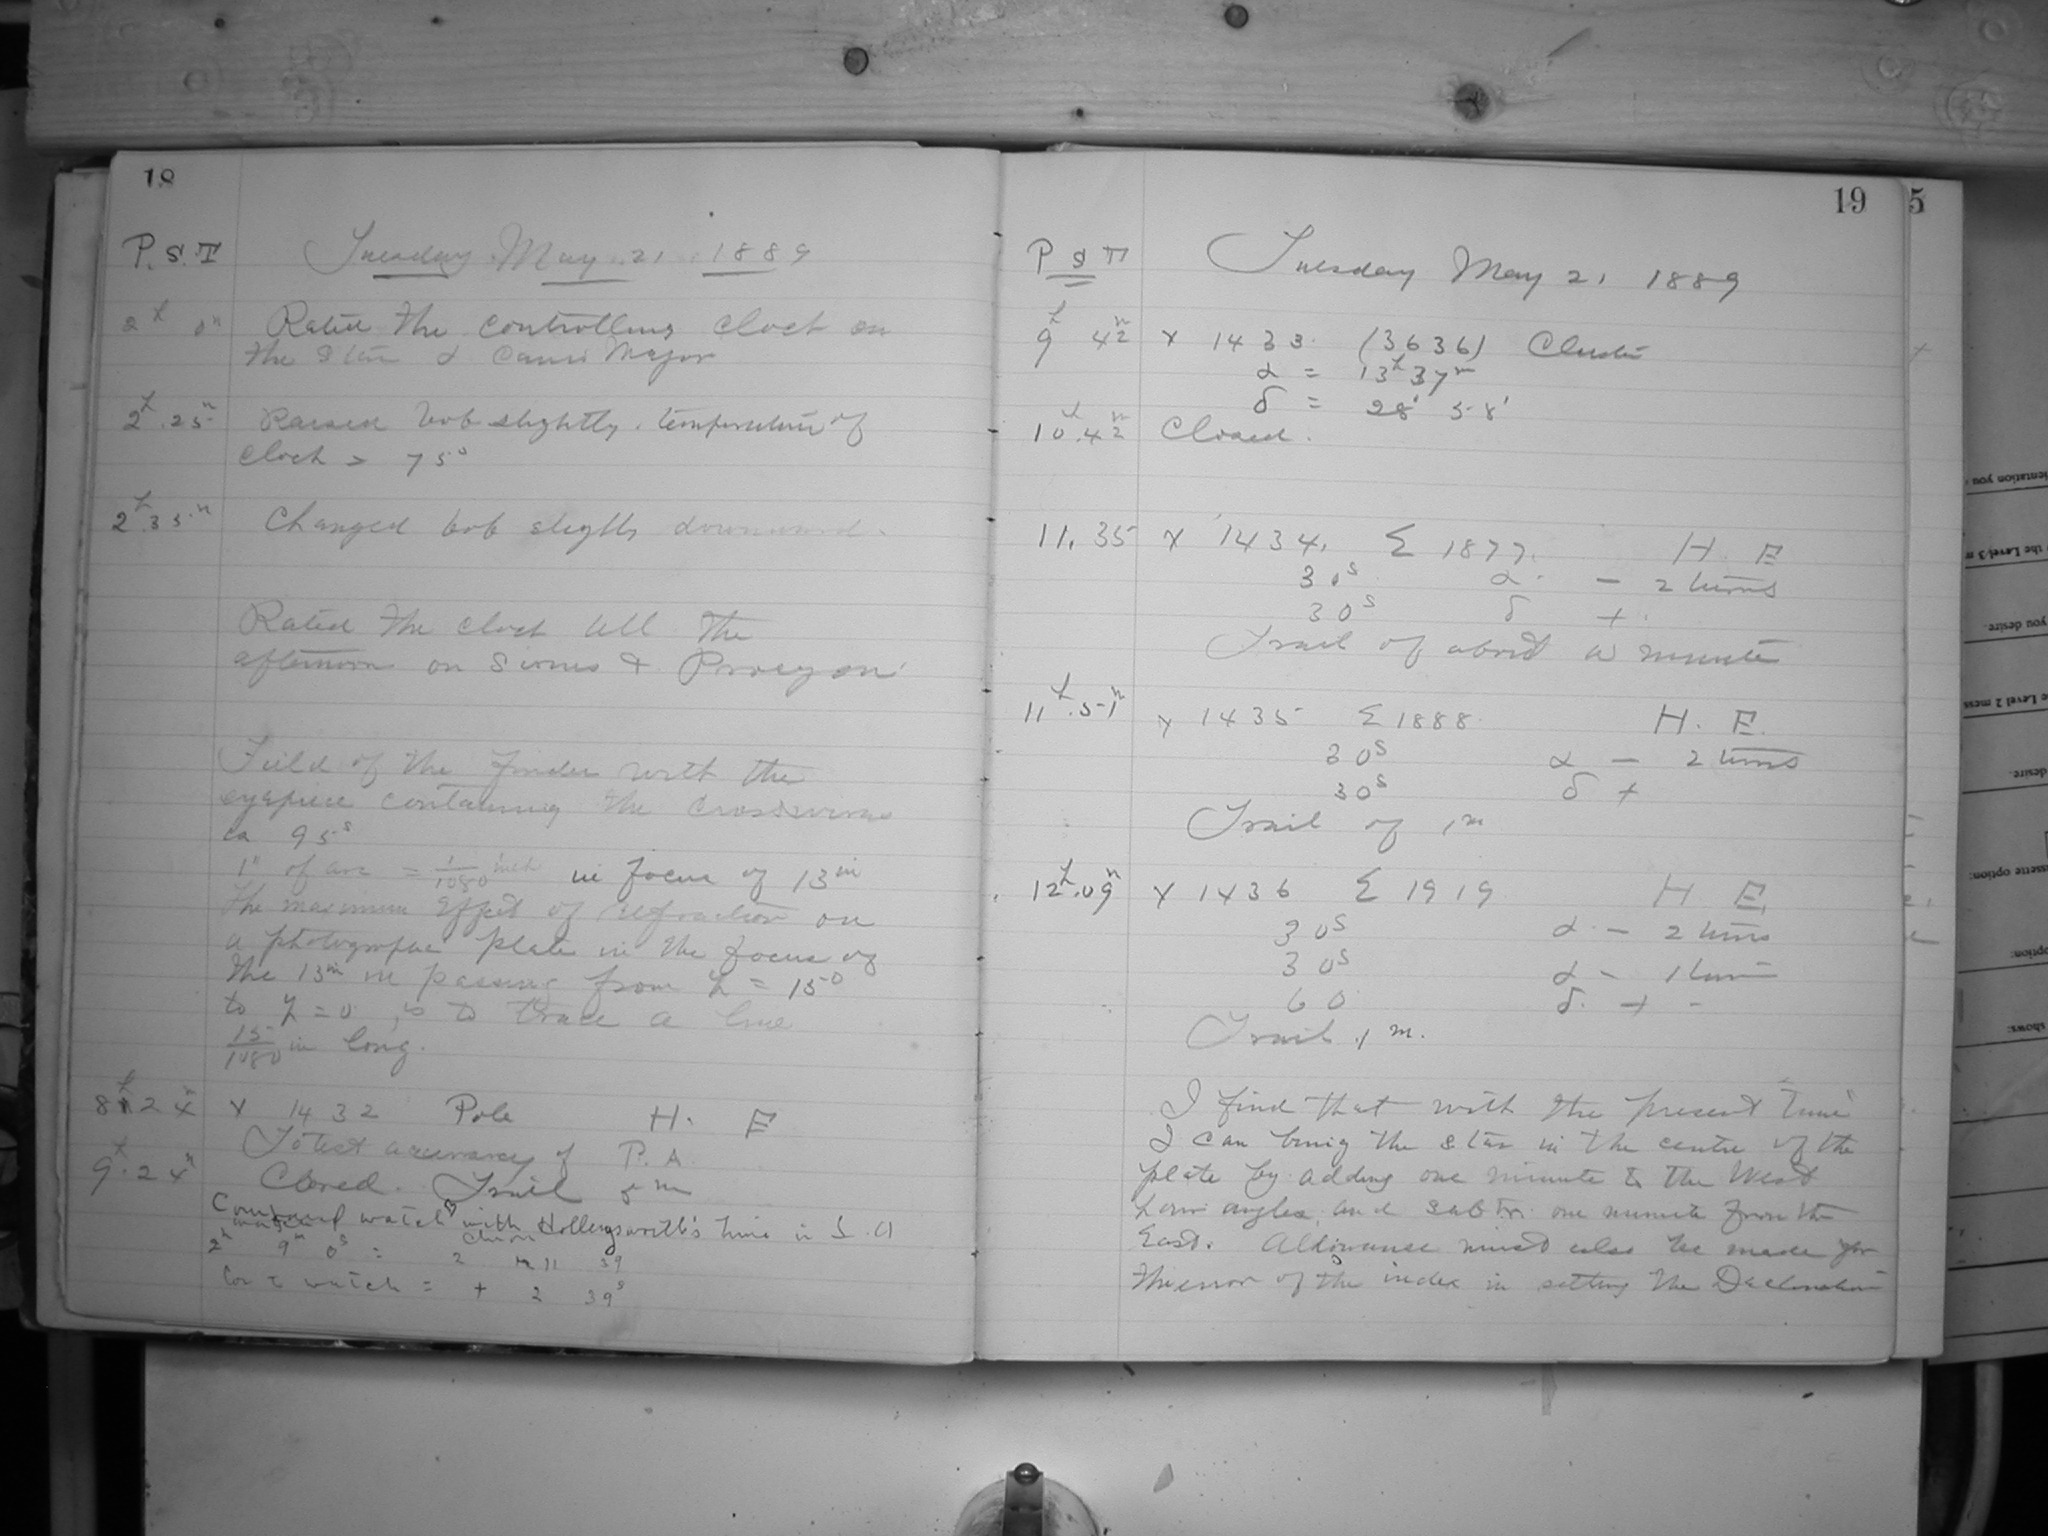 18
P. S. T Tuesday May 21 1889
2h 0m Rated the controlling clock on
the star α Canis Major
2h.25m Raised bob slightly. temperature of
clock = 75°
2h.35m Changed bob slightly downward.
Rated the clock all the
afternoon on Sirius & Procyon
Field of the finder with the
eyepiece containing the crosswires
ca 95s
1" of arc = 1/1080 inch in focus of 13in
The maximum effect of refraction on
a photographic plate in the focus of
the 13in in passing from h = 15°
to h = 0, is to trace a line
15/1080 in long.
8h24m × 1432 Pole H. E
To test accuracy of P. A.
9h.24m Closed. Trail 5m
Compared watch with Hollingsworth's time in
watch
2h 9m 0s = 2 11 39
Cor to watch = + 2 39s
19
P S T Tuesday May 21 1889
9h 42m × 1433. (3636) Cluster
α = 13h 37m
δ = 28° 58'
10h.42m Closed.
11.35 × 1434. Σ 1877. H. E
30s α. − 2 turns
30s δ +
Trail of about a minute
11h.51m × 1435 Σ 1888. H. E.
30s α − 2 turns
30s δ +
Trail of 1m
12h.09m × 1436 Σ 1919 H E.
30s α − 2 turns
30s α − 1 turn
60 δ. + -
Trail 1m.
I find that with the present "time"
I can bring the star in the centre of the
plate by adding one minute to the West
hour angles, and subtr. one minute from the
East. Allowance must also be made for
the error of the index in setting the Declination
5